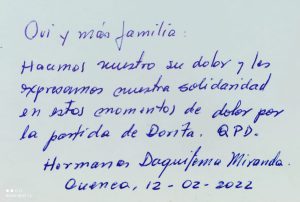 Ovi y más familia:
Hacemos nuestro su dolor y les
expresamos nuestra solidaridad
en estos momentos de dolor por
la partida de Dorita. QPD.
Hermanos Daquilema Miranda.
Cuenca, 12-02-2022